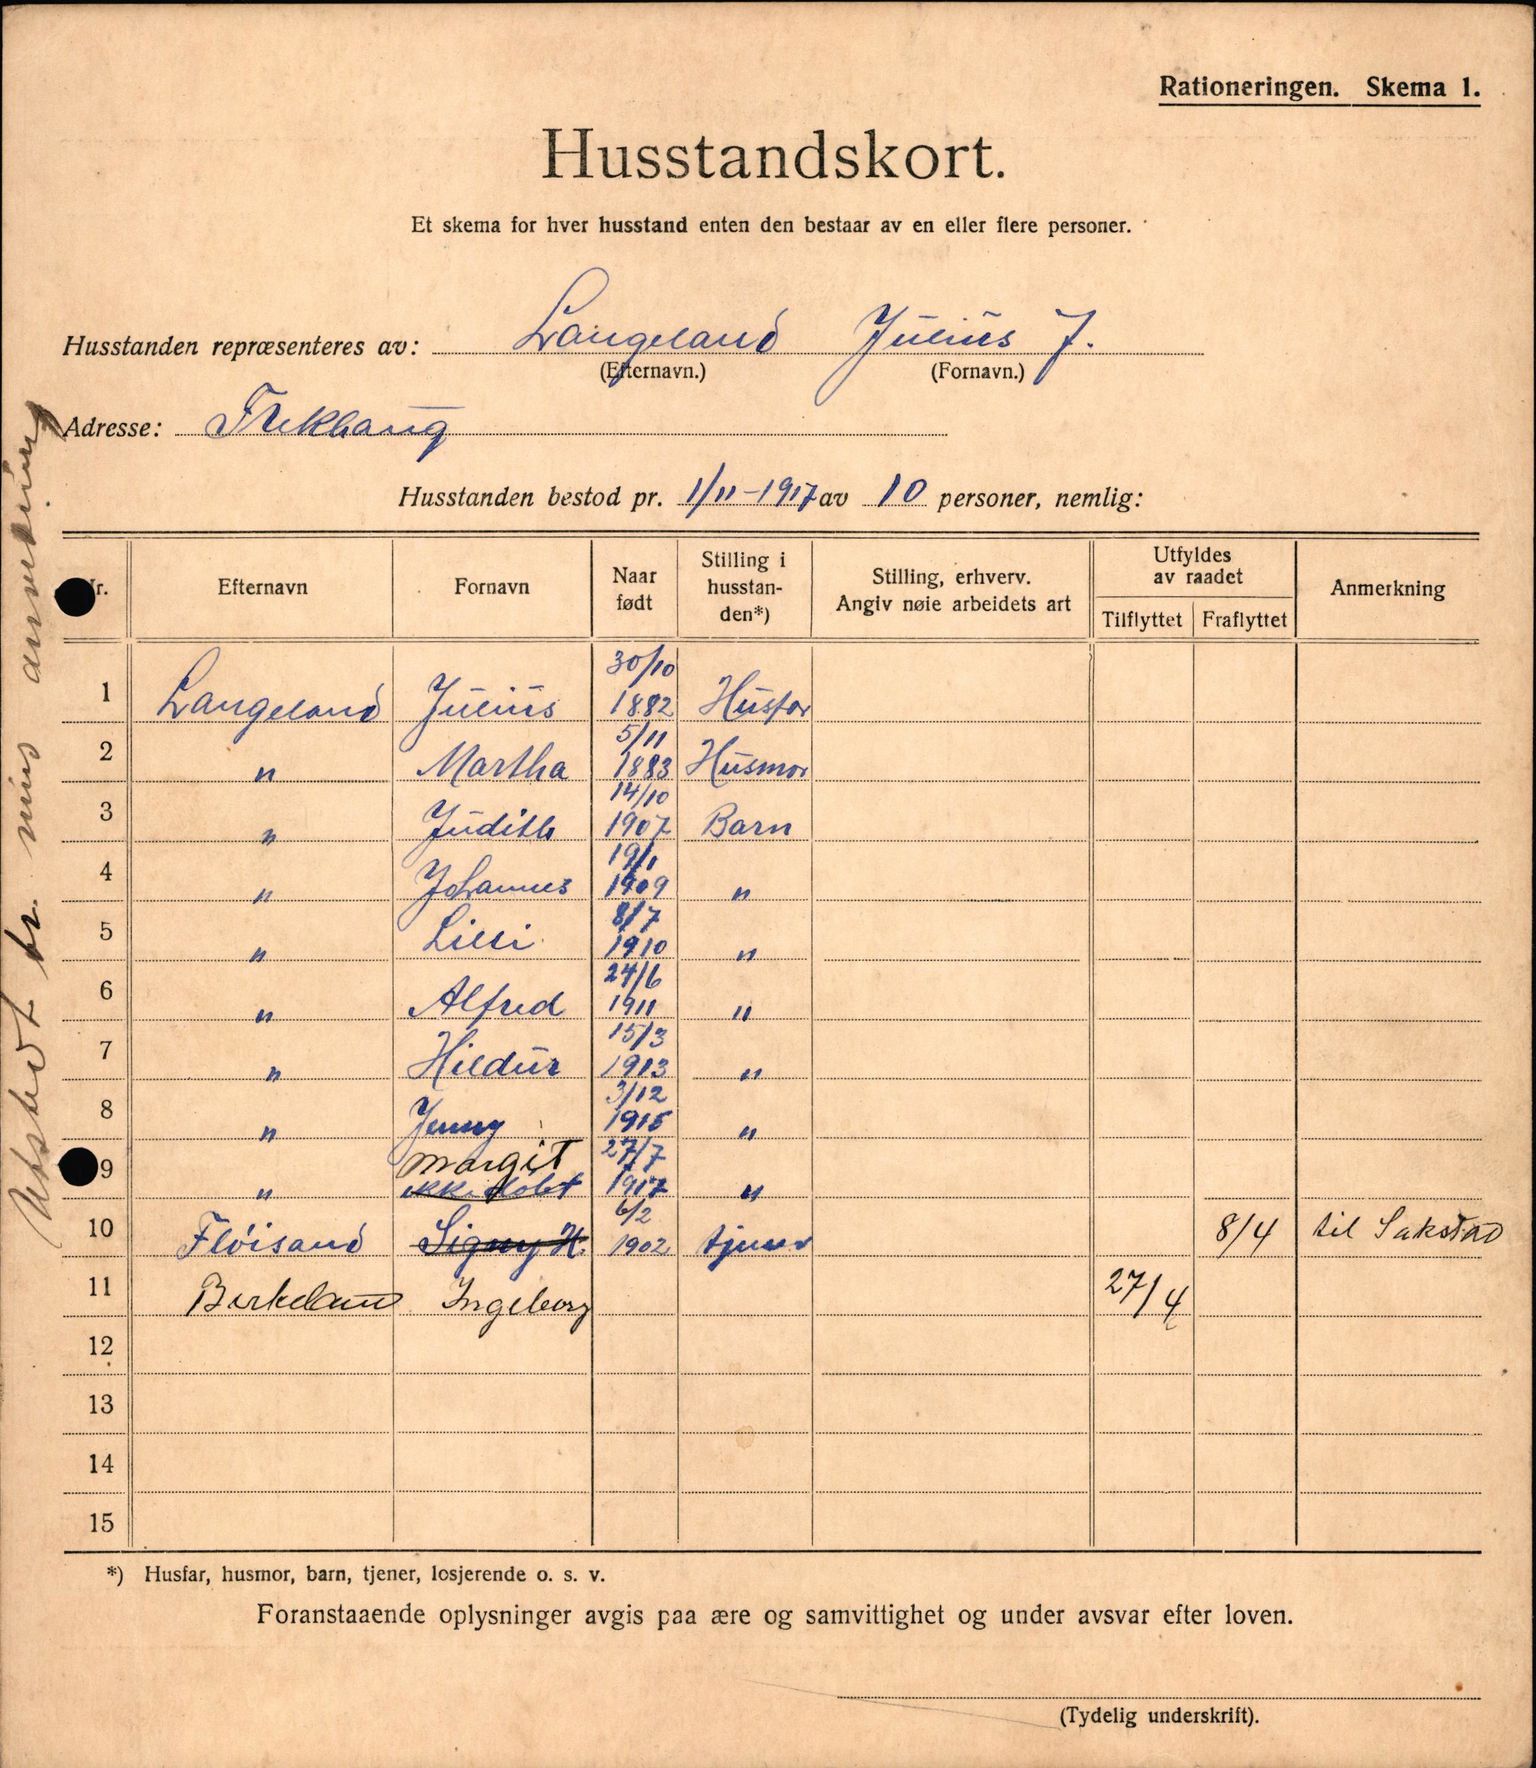 Rationeringen. Skema 1.
Husstandskort.
Et skema for hver husstand enten den bestaar av en eller flere personer.
Husstanden repræsenteres av: Langeland Julius J.
(Efternavn.) (Fornavn.)
Adresse: Frekhaug
Husstanden bestod pr. 1/11-1917 av 10 personer, nemlig:
Nr. Efternavn Fornavn Naar født Stilling i husstanden*) Stilling, erhverv. Angiv nøie arbeidets art Utfyldes av raadet Tilflyttet Fraflyttet Anmerkning
1 Langeland Julius 30/10 1882 Husfar
2 " Martha 5/11 1883 Husmor
3 " Judith 14/10 1907 Barn
4 " Johannes 19/1 1909 "
5 " Lilli 8/7 1910 "
6 " Alfred 24/6 1911 "
7 " Hildur 15/3 1913 "
8 " Jenny 3/12 1915 "
9 " Margit ikke døbt 27/7 1917 "
10 Fløisand Signy H. 6/2 1902 tjener 8/4 til Sakstad
11 Birkeland Ingeborg 27/4
12
13
14
15
*) Husfar, husmor, barn, tjener, losjerende o. s. v.
Foranstaaende oplysninger avgis paa ære og samvittighet og under avsvar efter loven.
(Tydelig underskrift).
Utstedt br. min anvisning